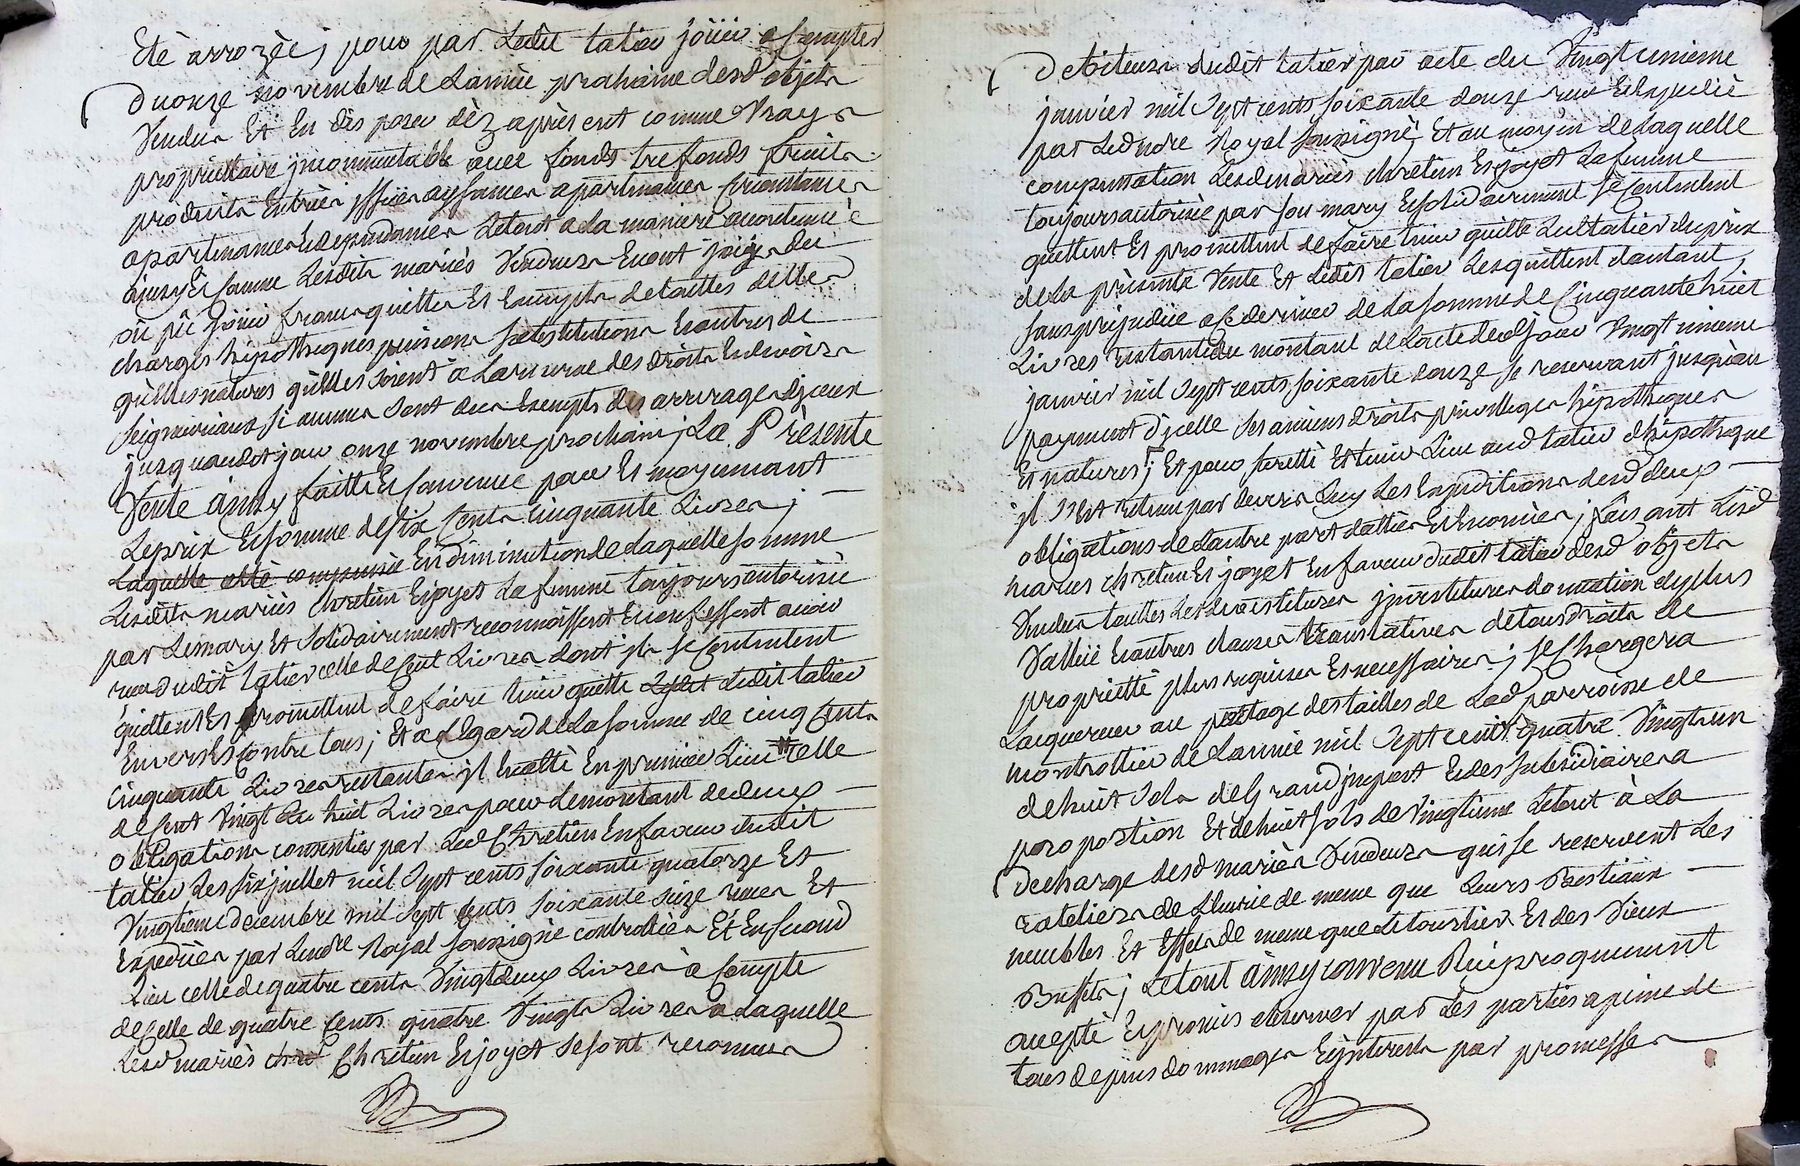 Eté arrozées; pour par Ledit tatier joüir a Compter
Du onze novembre de Lannée prochaine desd objets
Vendus Et En disposer dèz aprèsent comme Vrays
propriettaire jncommutable avec fonds trefonds fruits
produits Entrées jssües aysances apartenances Circonstances
apartenances Et dependances Le tout a la maniere acoutumée
ainsy Et Comme Lesdits mariés Vendeurs En ont joüy du
ou pû joüir francs quittes Et Exempts de touttes dettes
charges hipotheques pensions substitutions Et autres de
quelles natures quelles soient à La reserve des droits Et devoirs
seigneuriaux si aucuns sont dus Exempts des arrerages djceux
jusquaudit jour onze novembre prochain; La Présente
Vente ainsy faitte Et Convenue pour Et moyennant
Le prix Et somme de six Cents Cinquante Livres;
Laquelle a été comprisée En diminution de Laquelle somme
Lesdits mariés Chretien Et joyet La femme toujours autorisée
par Le mary Et solidairement reconnoissent Et confessent avoir
receu dudit tatier celle de Cent Livres dont jls se Contentent
quittent Et promettent de faire tenir quitte Ledit Ledit tatier
Envers Et Contre tous; Et a Legard de La somme de cinq Cents
cinquante Livres restantes jl En a Eté En premier Lieu * celle
de Cent Vingt Et huit Livres pour Le montant de deux
obligations consenties par Led Chretien En faveur dudit
tatier Les six juillet mil sept cents soixante quatorze Et
Vingtieme decembre mil sept cents soixante seize recües Et
Expediées par Le nore Royal soussigné controllées Et En second
Lieu celle de quatre cents Vingt deux Livres à Compte
de Celle de quatre Cents quatre Vingts Livres a Laquelle
Lesd mariés chret Chretien Et joyet se sont reconnus
Debiteurs dudit tatier par acte du Vingt unieme
janvier mil sept cents soixante douze recu Et Expedié
par Led nore Royal soussigné, Et au moyen de Laquelle
compensation Lesd mariés chretien Et joyet La femme
toujours autorisée par son mary Et solidairement se Contentent
quittent Et promettent de faire tenir quitte Ledit tatier du prix
de La présente Vente Et Ledit tatier Les quittent dautant,
sans prejudice a Ce dernier de La somme de Cinquante huit
Livres restante du montant de Lacte dud jour Vingt unieme
janvier mil sept cents soixante douze se reservant jusquau
payement djcelle ses anciens droits privilleges hipotheques
Et natures; Et pour sureté Et tenir Lieu aud tatier dhipotheque
jl sest retenu par devers Luy Les Expeditions desd deux
obligations de Lautre part dattées Et Enoncées; faisant Lesd
mariés chretien Et joyet En faveur dudit tatier desd objets
Vendus touttes Les devestitures jnvestitures donnation du plus
Vallüe Et autres clauses translatives de tous droits de
proprietté plus requises Et necessaires; se Chargera
Lacquereur au partage des tailles de Lad parroisse de
montrottier de Lannée mil sept cent quatre Vingt un
de huit sols de Grand jmpost Et des subsidiaires a
proportion Et de huit sols de Vingtieme Le tout à La
Decharge desd mariés Vendeurs qui se reservent Les
rateliers de Lecurie de meme que Leurs Bestiaux
meubles Et Effets de meme que Le tourtier Et des Vieux
Buffets; Le tout ainsy convenu Réciproquement
accepté Et promis observer par Les parties a peine de
tous depens dommages Et jnterests par promesses